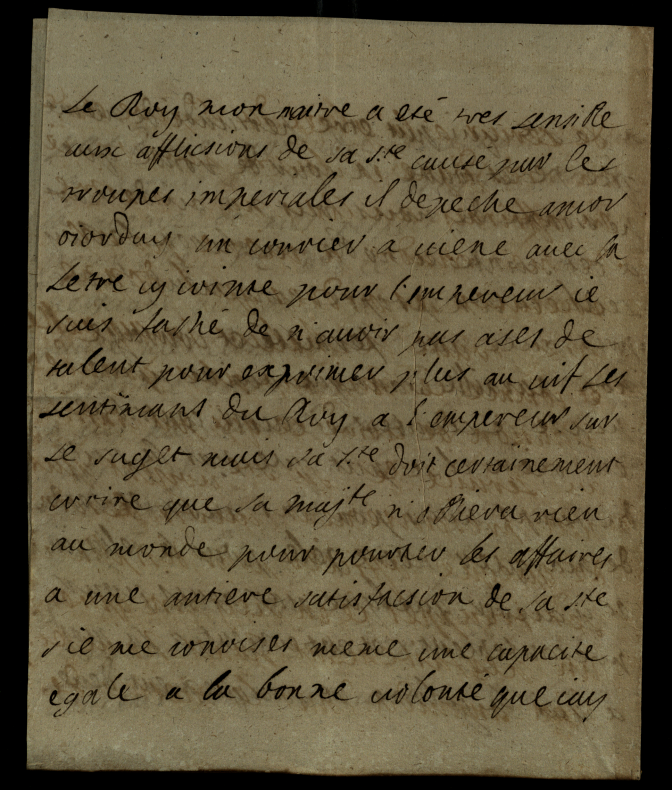 Le Roy mon maitre a eté tres sensible
aux afflicsions de sa ste causé par les
troupes imperiales il depeche amor
oiorduy un courier a viene avec la
Letre cy iointe pour l'empereur ie
suis faché de n'avoir pas ases de
talent pour exprimer plus au vif les
sentimant du Roy a l'empereur sur
Le suget mais sa ste doit certainement
croire que sa majte n'obliera rien
au monde pour pourter les affaires
a une antiere satisfacsion de sa ste
sie me conoises meme une capacite
egale a la bonne volonté que iay